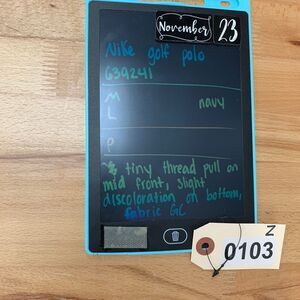 November 23
Nike golf polo
639241
M navy
L
P
tiny thread pull on
mid front, slight
discoloration on bottom,
fabric GC
Z
0103